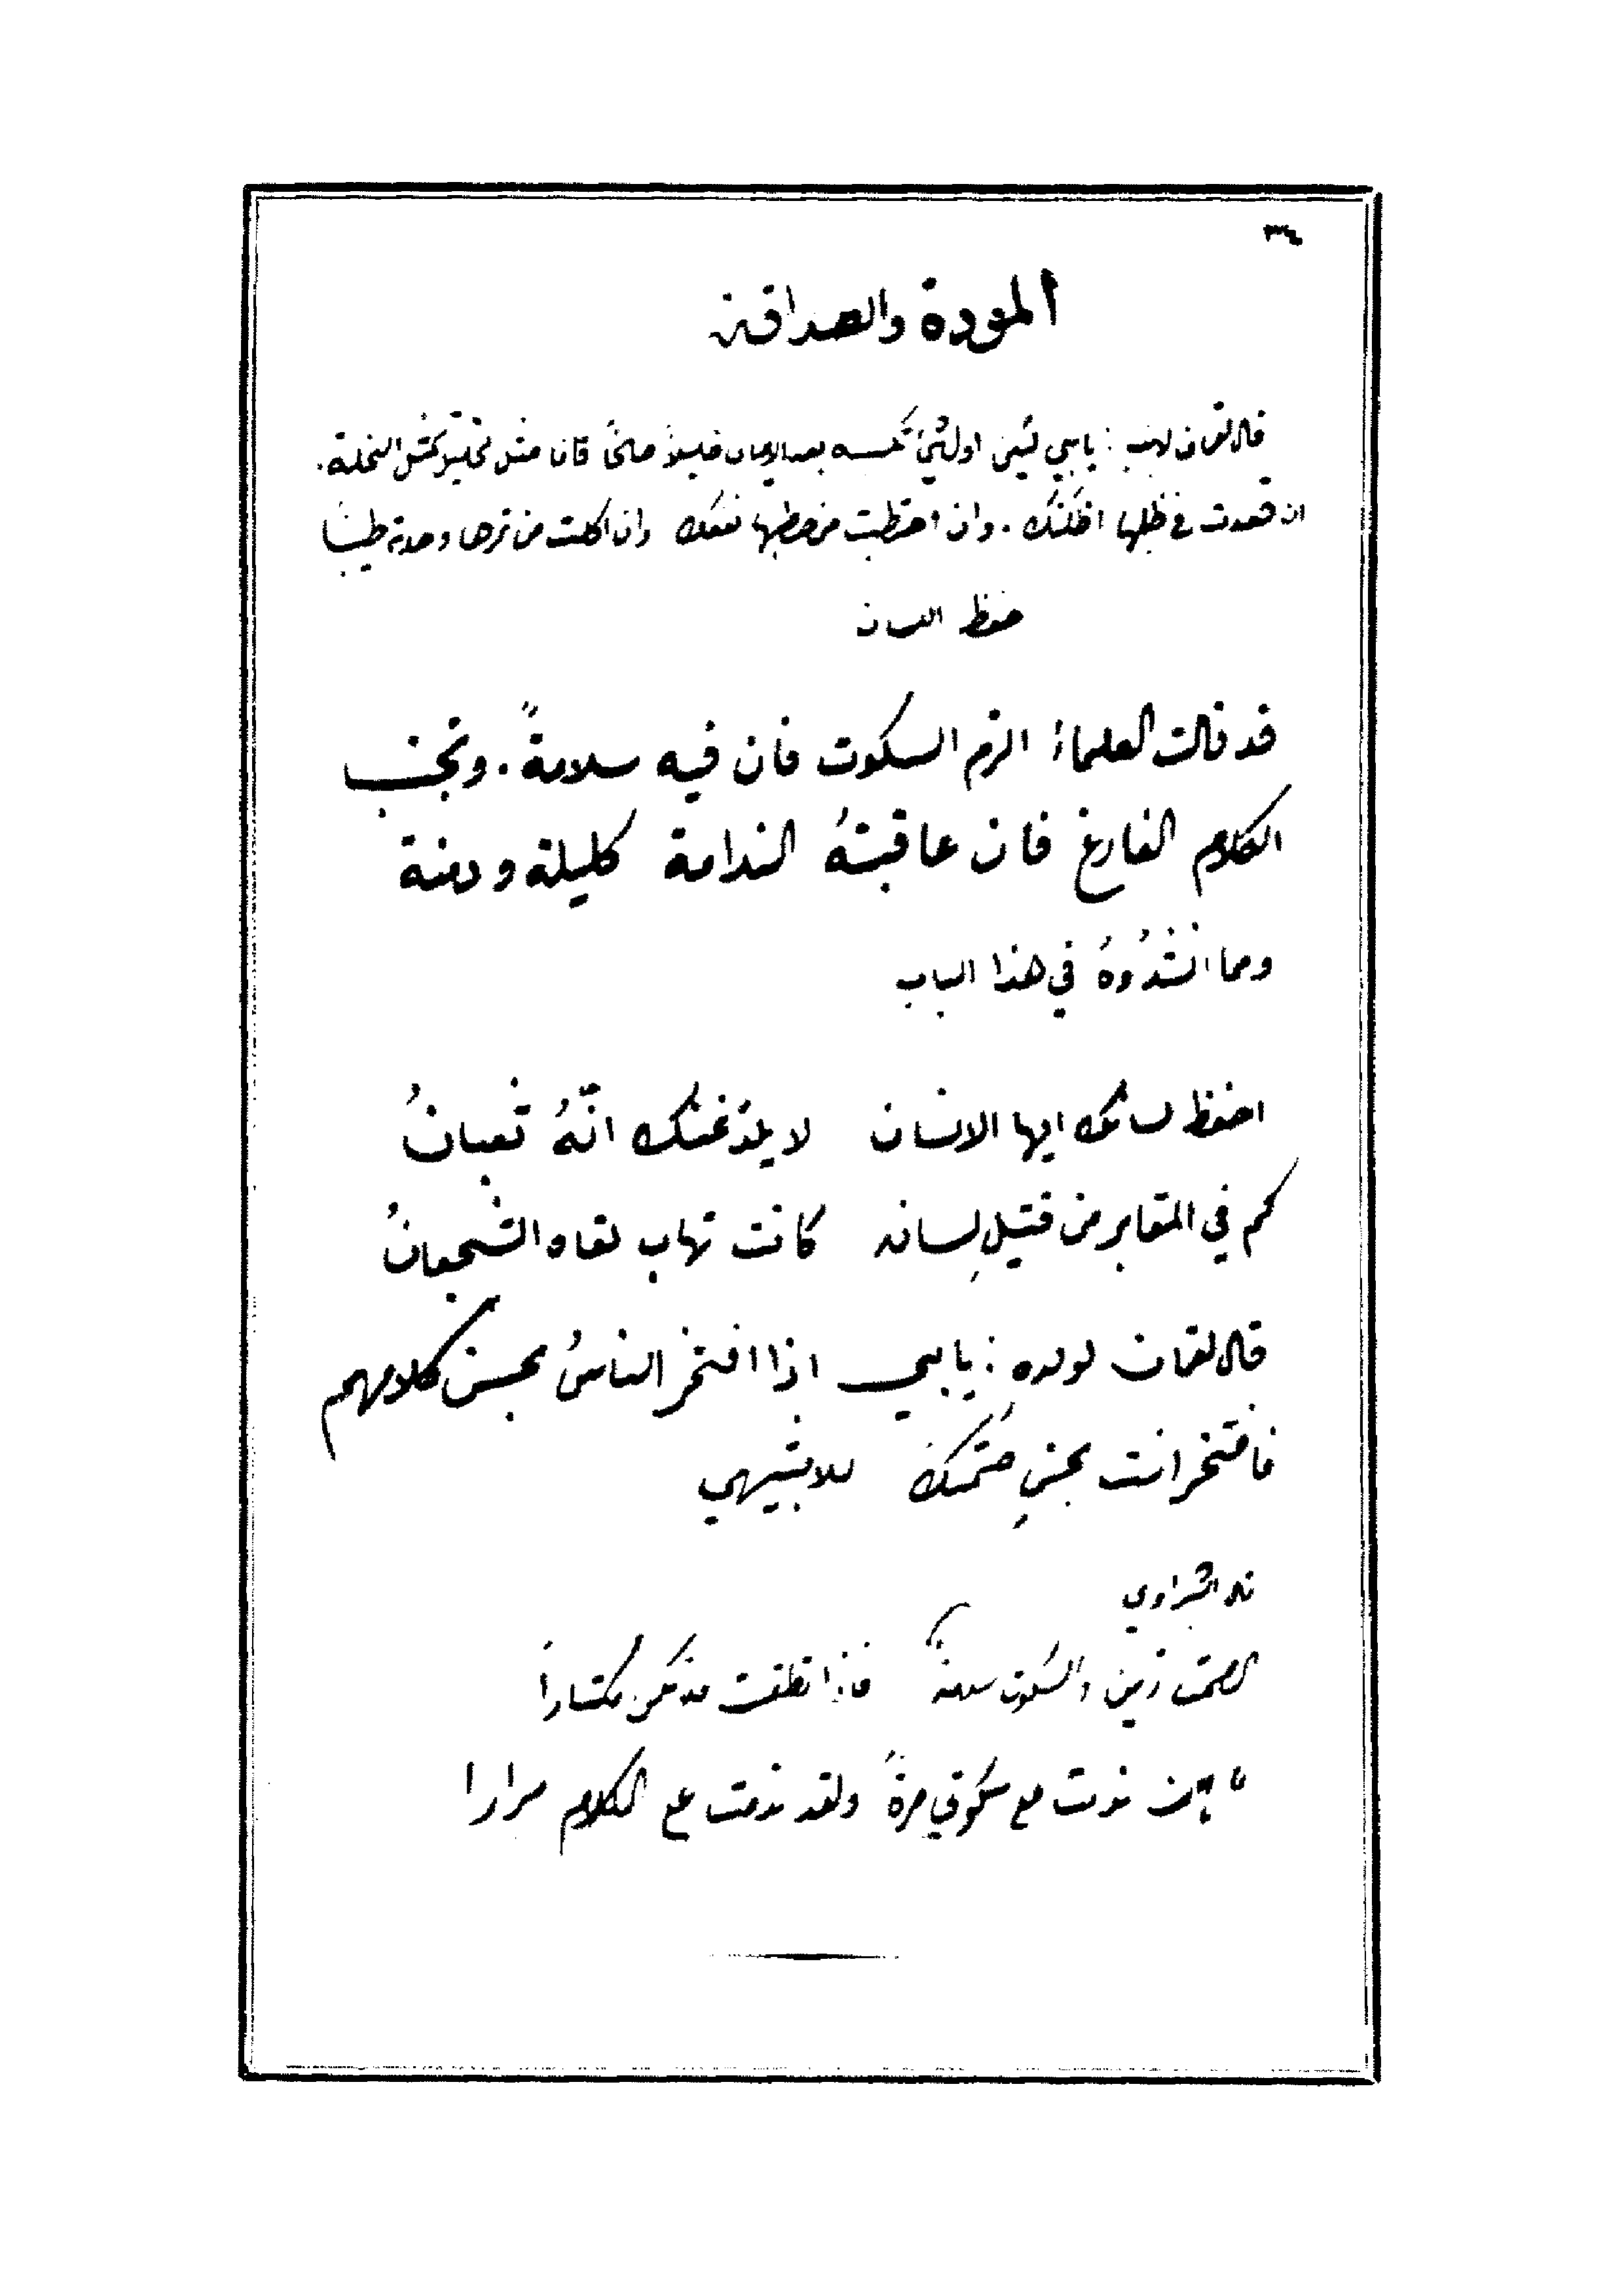 ٣٤
المودة والصداقة
قال لقمان لابنه : يا بني ليكن اول شيءٍ تكسبه بعد الايمان خليلاً صالحاً فان مثل الخليل كمثل النخلة .
ان قعدت في ظلها اظلتك . وان احتطبت من حطبها نفعك وان اكلت من ثمرها وجدته طيباً
حفظ اللسان
قد قالت العلماءُ الزم السكوت فان فيه سلامةً . وتجنب
الكلام الفارغ فان عاقبتهُ الندامة كليلة و دمنة
ومما انشدُوهُ في هذا الباب
احفظ لسانك ايها الانسان لا يلدغنك انّهُ ثعبانُ
كم في المقابر من قتيل لِسانه كانت تهاب لقاه الشجعانُ
قال لقمان لولده : يا بني اذا افتخر الناسُ بحسن كلامهم
فافتخر انت بحسنِ صمتك للابشيهي
الشبراوي
الصمت زين والسكوت سلامةٌ فاذا نطقت فلا تكن مكثاراً
ما ان ندمت على سكوتي مرةً ولقد ندمت على الكلام مرارا